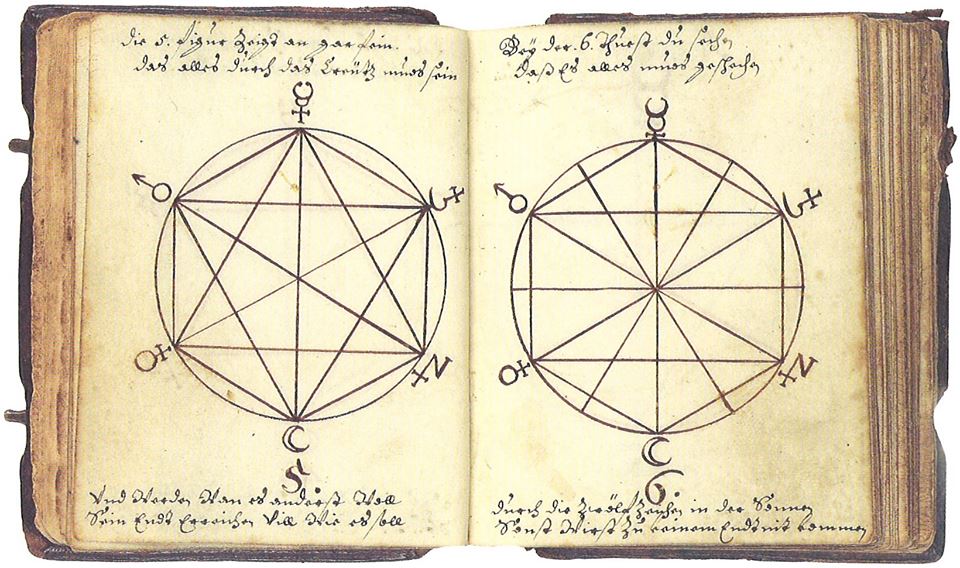 die 5. figur Zeigt an gar fein.
das alles durch das Creütz mues sein
5.
Vnd Werden Wan es anderst Woll
Sein Endt Erreichen Will Wie es soll
Bey der 6. Thuest du sechen
Daß Es alles mues geschechen
6.
durch die Zwölf Zeichen in der Sonnen
Sonst Wirst Zu keinem Endt nit kommen